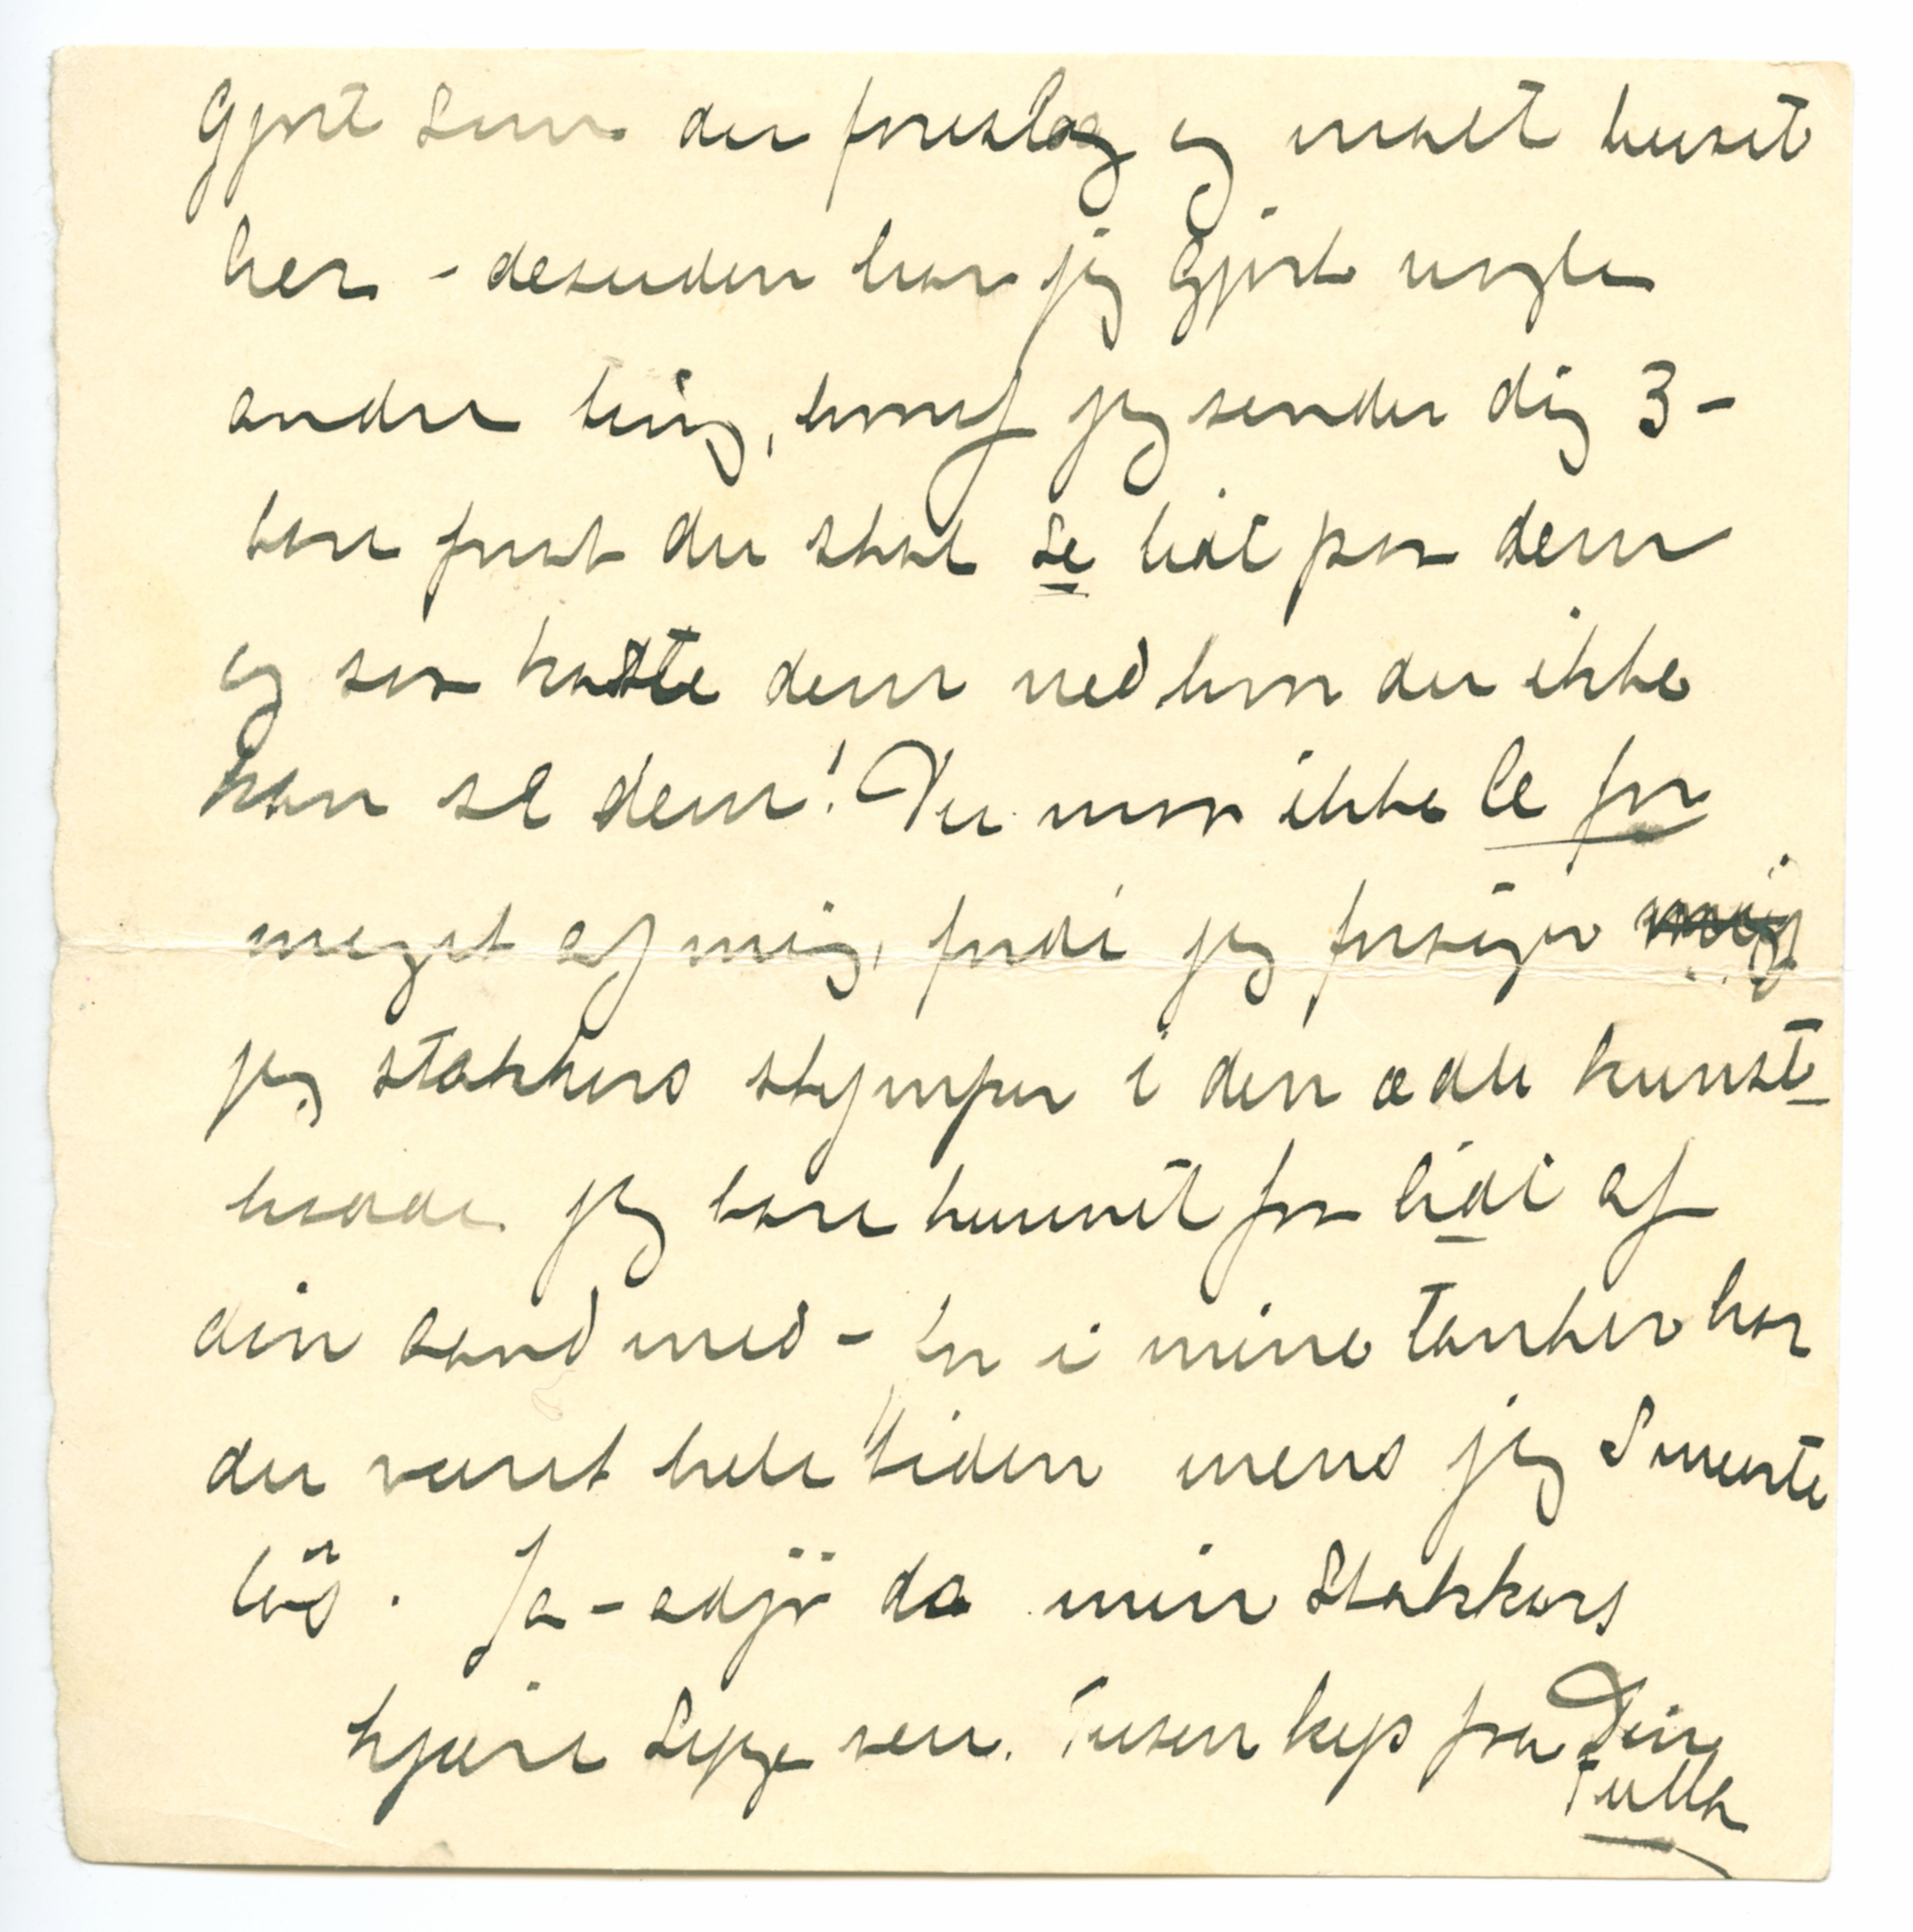 gjort som du foreslog og malt huset
her - desuden har jeg gjort nogle
andre ting, hvoraf jeg sender dig 3 -
bare forat du skal se lidt paa dem
og saa kaste dem ned hvor du ikke
kan se dem! Du maa ikke le for
meget af mig, fordi jeg forsøger mig
jeg stakkers stymper i den ædle kunst -
havde jeg bare kunnet faa lidt af
din aand med - for i mine Tanker har
du været hele tiden mens jeg Smurte
løs. Ja - adjø da min Stakkars
kjære syge ven. Tusen kys fra Din
Tulla